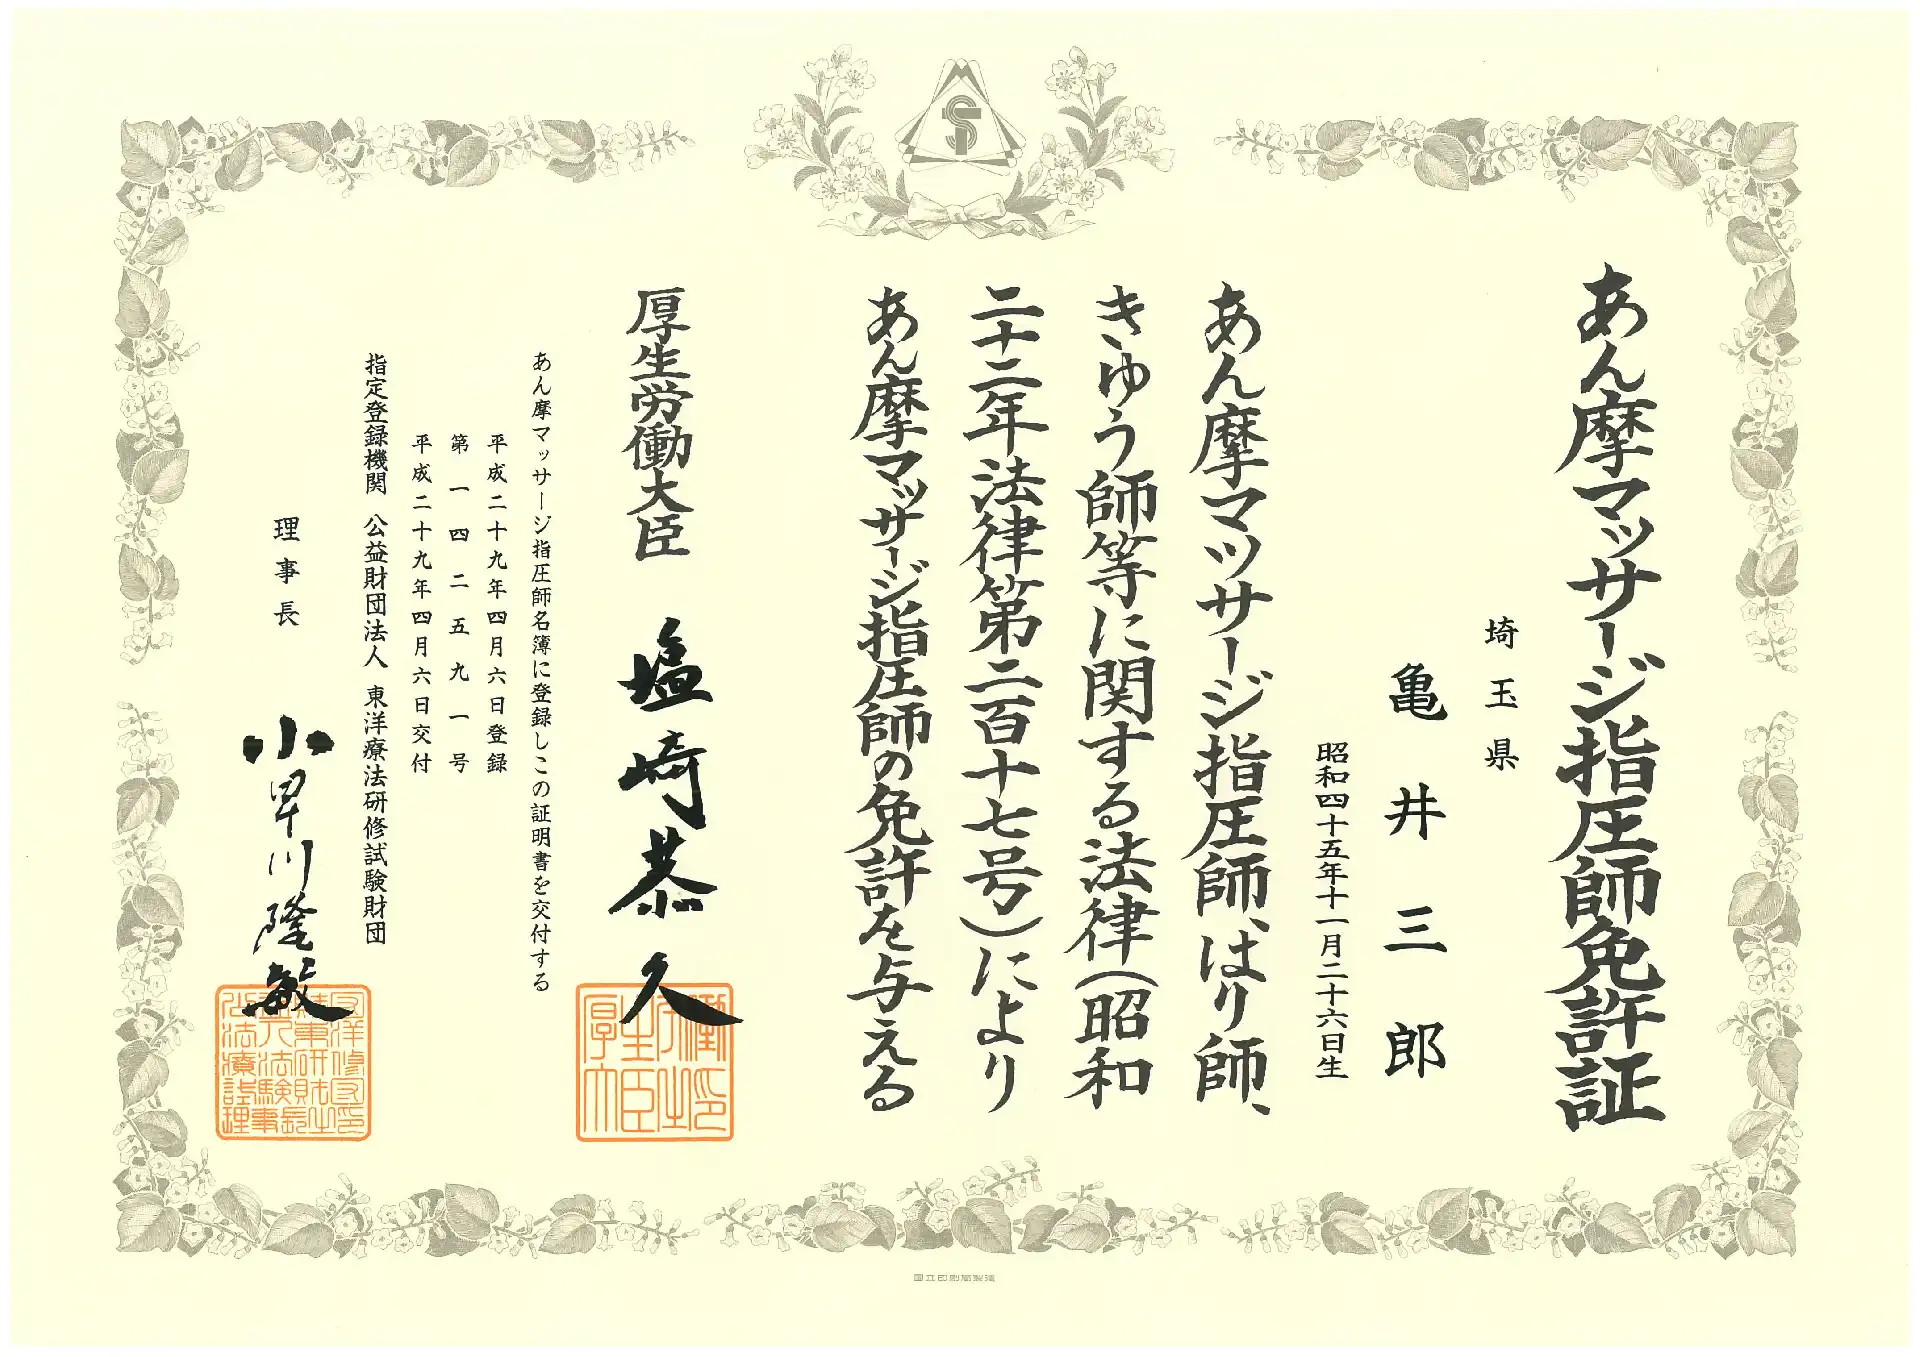 あん摩マッサージ指圧師免許証
埼玉県
亀井三郎
昭和四十五年十一月二十六日生
あん摩マツサージ指圧師、はり師、
きゆう師等に関する法律(昭和
二十二年法律第二百十七号)により
あん摩マッサージ指圧師の免許を与える
厚生労働大臣 塩崎恭久
あん摩マッサージ指圧師名簿に登録しこの証明書を交付する
平成二十九年四月六日登録
第一四二五九一号
平成二十九年四月六日交付
指定登録機関 公益財団法人 東洋療法研修試験財団
理事長 小早川隆敏
国立印刷局製造